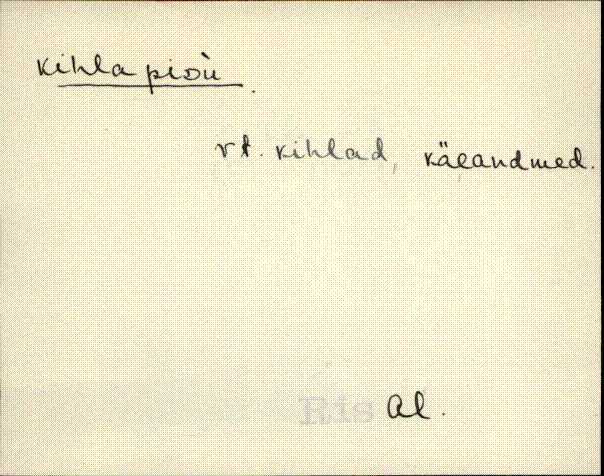 kihlapidù.
vt. kihlad, käeandmed.
Ris al.